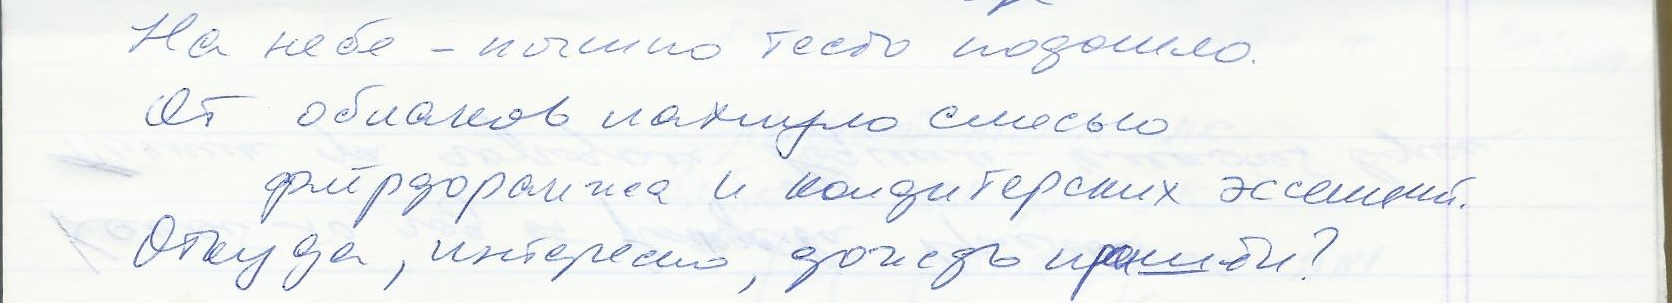 На небе – пышно тесто подошло.
От облаков пахнуло смесью
флёрдоранжа и кондитерских эссенций.
Откуда, интересно, дождь